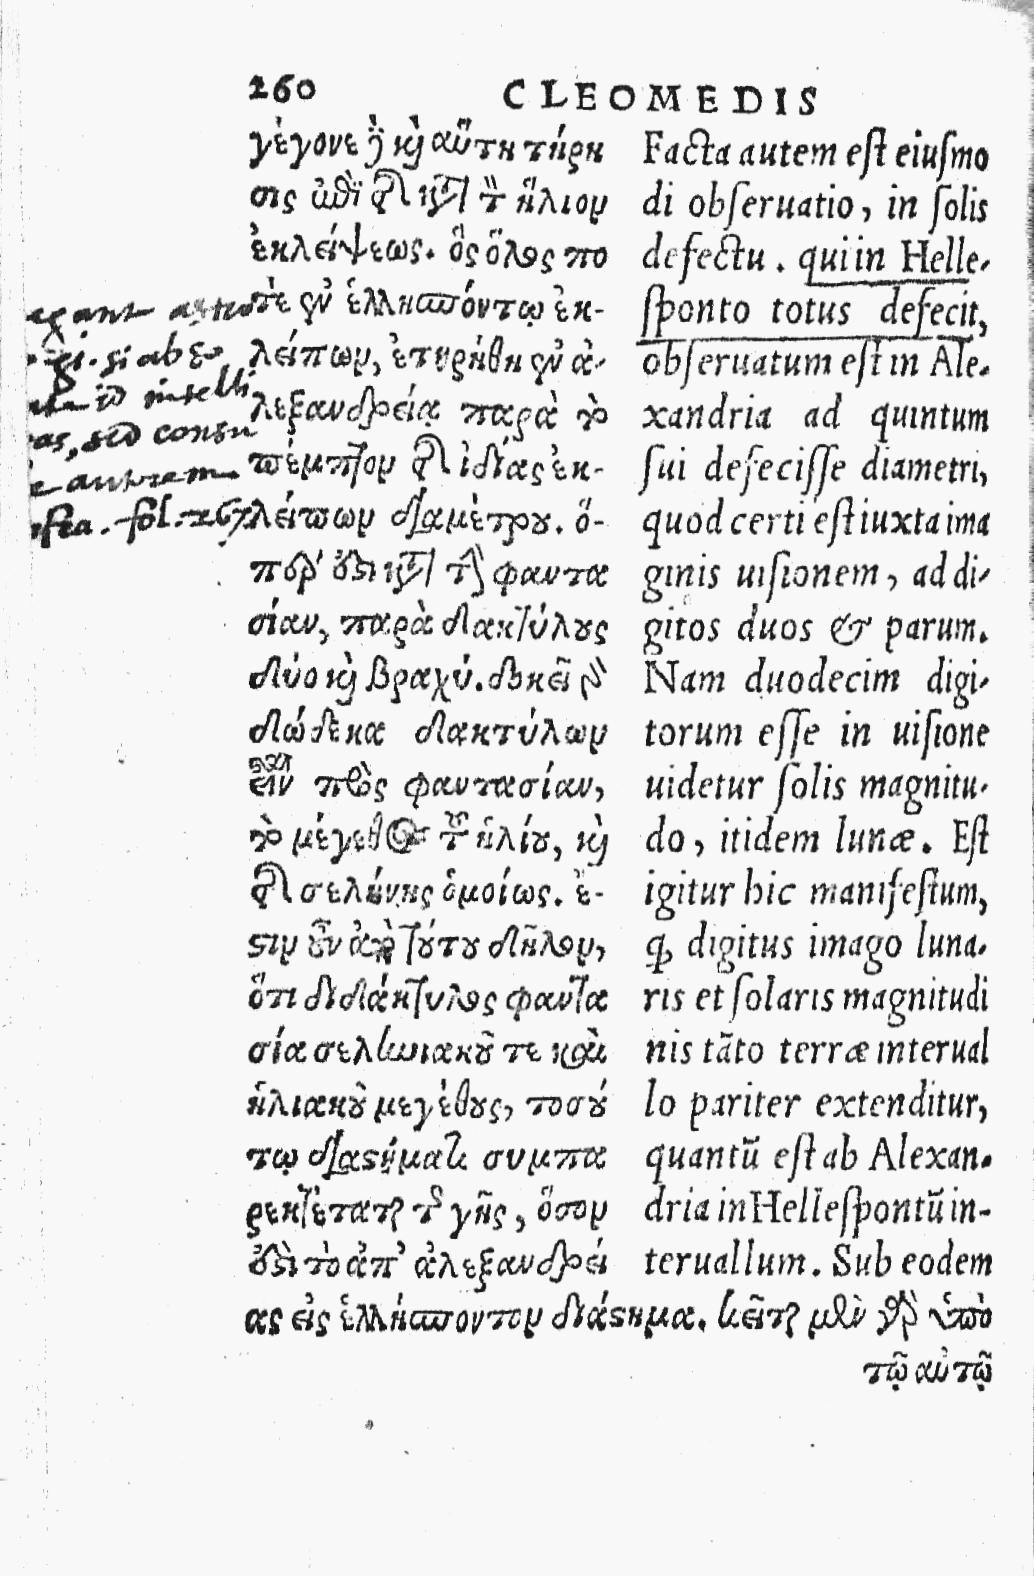 260 CLEOMEDIS
γέγονε δὲ καὶ αὕτη τήρη
σις ἐπὶ τῆς κατὰ τὸν ἥλιον
ἐκλείψεως. ὃς ὅλος πο
τὲ ἐν ἑλλησπόντῳ ἐκ-
λείπων, ἐτηρήθη ἐν ἀ-
λεξανδρείᾳ παρὰ τὸ
πέμπτον τῆς ἰδίας ἐκ-
λείπων διαμέτρου. ὅ-
περ ἐστὶ κατὰ τὴν φαντα
σίαν, παρὰ δακτύλους
δύο καὶ βραχύ. δοκεῖ γὰρ
δώδεκα δακτύλων
εἶν πρὸς φαντασίαν,
τὸ μέγεθος τοῦ ἡλίου, καὶ
τῆς σελήνης ὁμοίως. ἔ-
στιν οὖν ἀπὸ τούτου δῆλον,
ὅτι δι δάκτυλος φαντα
σία σεληνιακοῦ τε καὶ
ἡλιακοῦ μεγέθους, τοσού
τῳ διαστήματι συμπα
ρεκτέταται τῆς γῆς, ὅσον
ἐστὶ τὸ ἀπ' ἀλεξανδρεί
ας εἰς ἑλλήσποντον διάστημα. κεῖται μὲν γὰρ ὑπὸ
τῷ αὐτῷ
Facta autem est eiusmo
di obseruatio, in solis
defectu. qui in Helle-
sponto totus defecit,
obseruatum est in Ale-
xandria ad quintum
sui defecisse diametri,
quod certi est iuxta ima
ginis uisionem, ad di-
gitos duos & parum.
Nam duodecim digi-
torum esse in uisione
uidetur solis magnitu-
do, itidem lunæ. Est
igitur hic manifestum,
ꝙ digitus imago luna-
ris et solaris magnitudi
nis tãto terræ interual
lo pariter extenditur,
quantũ est ab Alexan-
dria in Hellespontũ in-
teruallum. Sub eodem
si ab
intelli
sed consu
autem
fol. 267